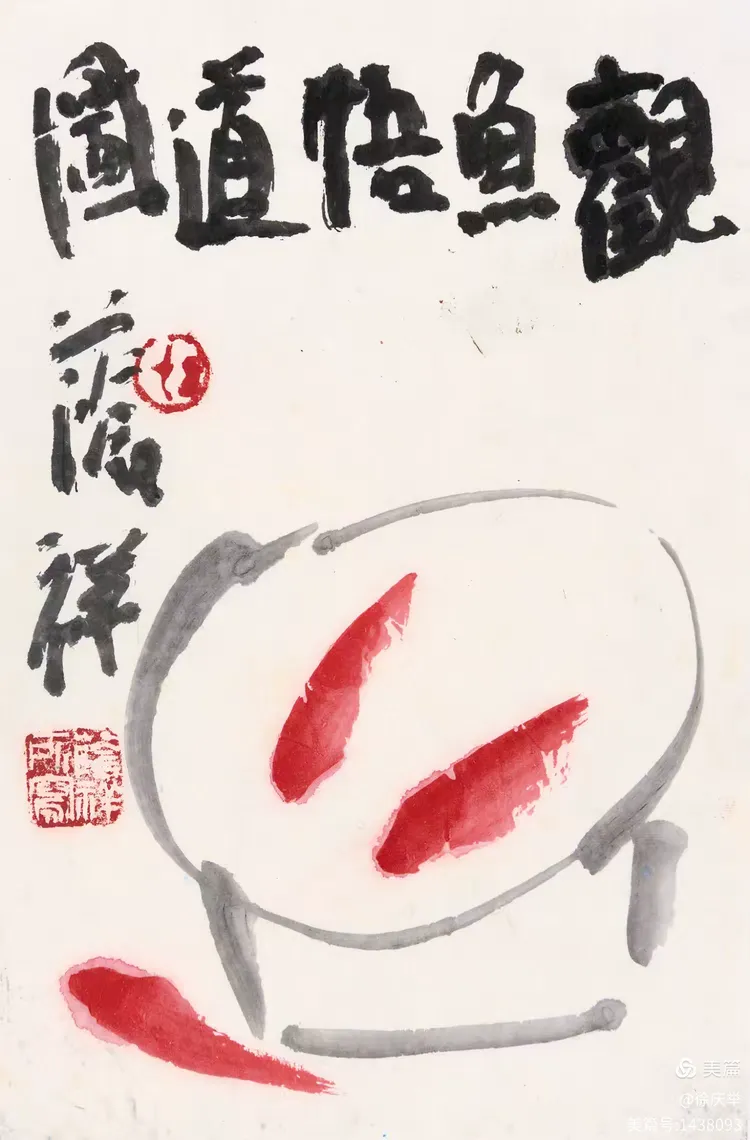 觀魚悟道圖
祥
美篇
美篇号:1438093